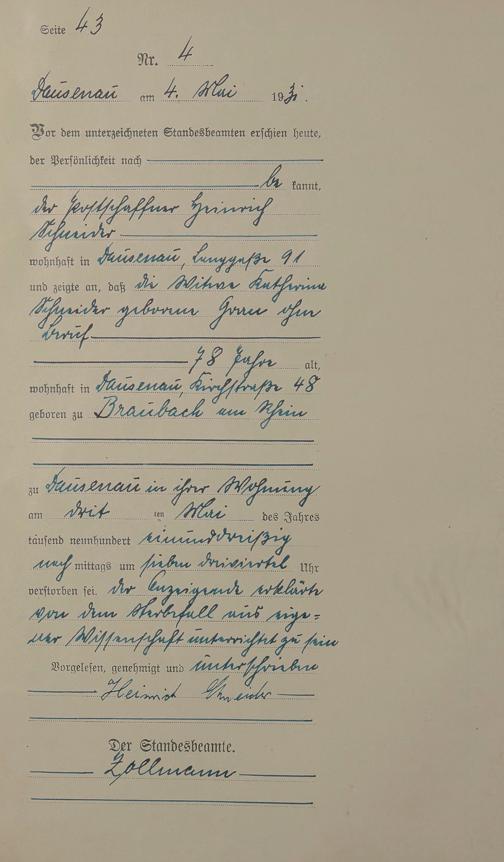 Seite 43
Nr. 4
Dausenau am 4. Mai 1931.
Vor dem unterzeichneten Standesbeamten erschien heute,
der Persönlichkeit nach
be kannt,
der Postschaffner Heinrich
Schneider
wohnhaft in Dausenau, Langgaße 91
und zeigte an, daß die Witwe Katharina
Schneider geborene Grau ohne
Beruf
78 Jahre alt,
wohnhaft in Dausenau, Kirchstraße 48
geboren zu Braubach am Rhein
zu Dausenau in ihrer Wohnung
am drit ten Mai des Jahres
tausend neunhundert einunddreißig
nach mittags um sieben dreiviertel Uhr
verstorben sei. Der Anzeigende erklärte
von dem Sterbefall aus eige=
ner Wissenschaft unterrichtet zu sein
Vorgelesen, genehmigt und unterschrieben
Heinrich Schneider
Der Standesbeamte.
Zollmann